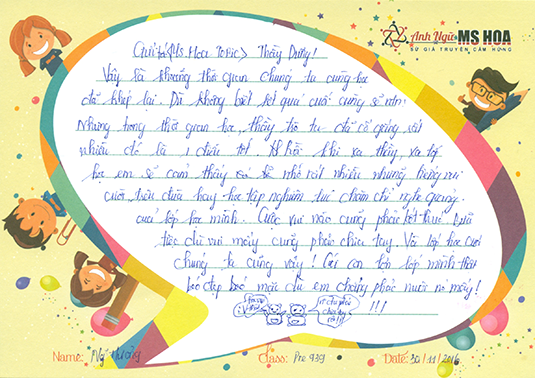 Anh Ngữ MS HOA
SỨ GIẢ TRUYỀN CẢM HỨNG
Gửi tới <Ms Hoa TOEIC> Thầy Dương!
Vậy là khoảng thời gian chúng ta cùng học
đã khép lại. Dù không biết kết quả cuối cùng sẽ ntn.
Nhưng trong thời gian học, thầy trò ta đã cố gắng rất
nhiều đó là 1 điều tốt. khi xa thầy xa lớp
học em sẽ cảm thấy nhớ rất nhiều những tiếng vui
cười trêu đùa hay học tập nghiêm túc chăm chỉ nghe giảng
của lớp học mình. Cuộc vui nào cũng phải kết thúc
tiệc dù vui mấy cũng phải chia tay. Và lớp học cuối
chúng ta cũng vậy! lớp mình thật
mặc dù em chẳng phải mấy!
!!!
Name: Class: Pre 939 Date: 30/11/2016